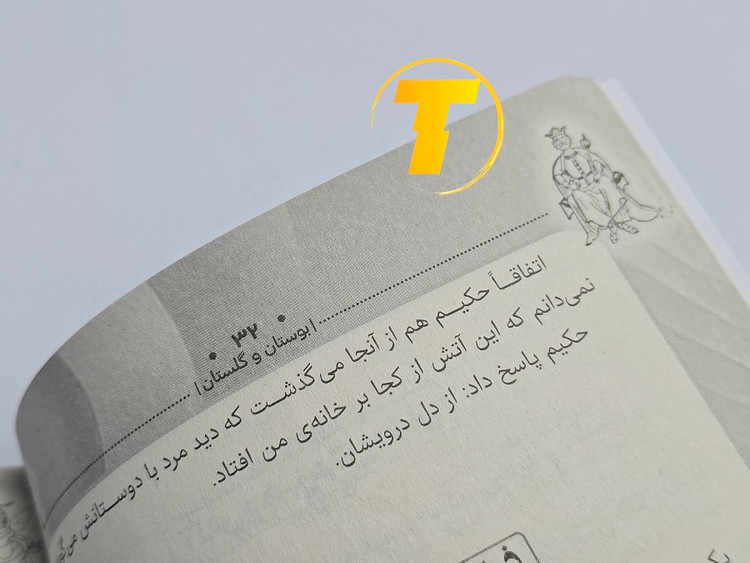 T
۳۲
| بوستان و گلستان |
اتفاقـاً حکیـم هم از آنجا می‌گذشـت که دید مرد با دوسـتانش
نمی‌دانم که این آتش از کجا بر خانه‌ی من افتاد.
حکیم پاسخ داد: از دل درویشان.